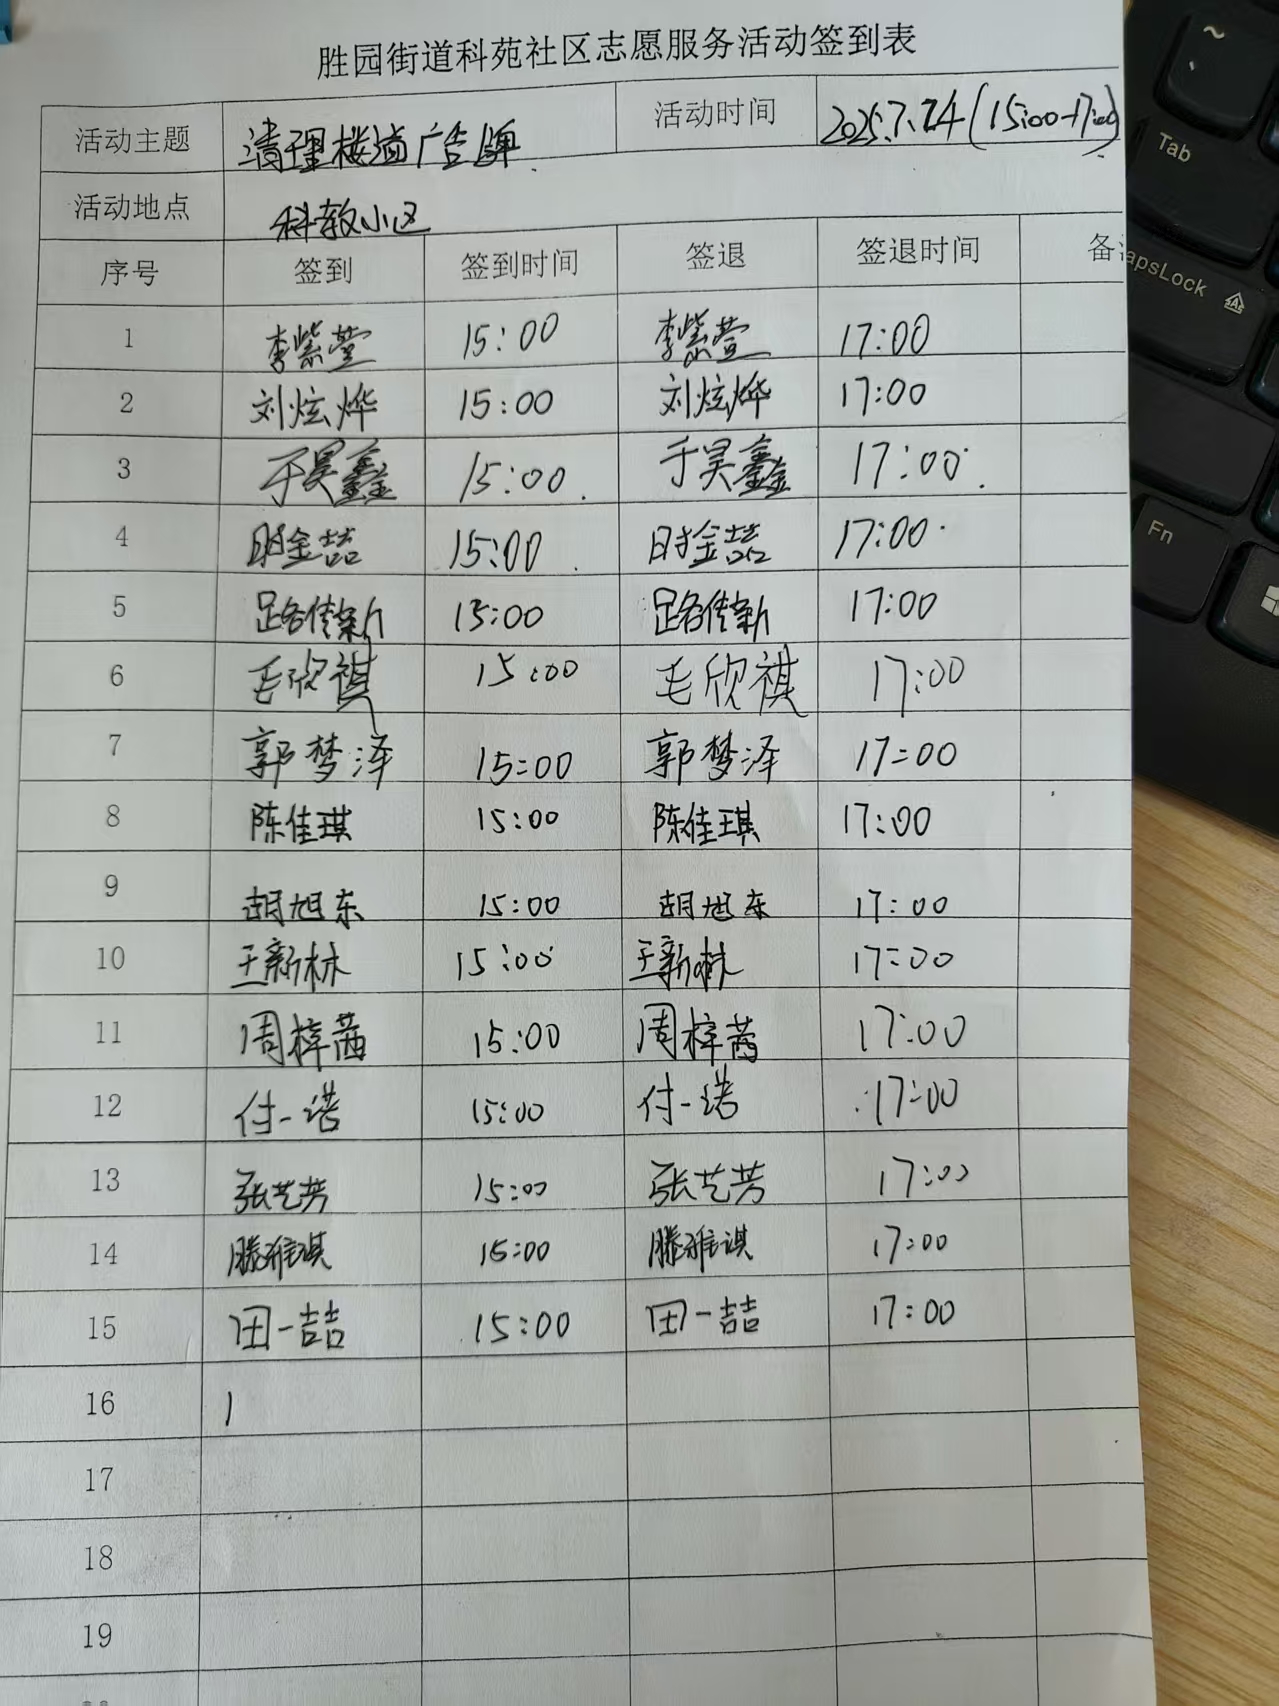 胜园街道科苑社区志愿服务活动签到表
活动主题 清理楼道广告牌 活动时间 2025.7.24(15:00-17:00)
活动地点 科教小区
序号 签到 签到时间 签退 签退时间 备
1 李紫萱 15:00 李紫萱 17:00
2 刘炫烨 15:00 刘炫烨 17:00
3 于昊鑫 15:00. 于昊鑫 17:00.
4 时金喆 15:00. 时金喆 17:00
5 路佳新 15:00 路佳新 17:00
6 毛欣祺 15:00 毛欣祺 17:00
7 郭梦泽 15:00 郭梦泽 17:00
8 陈佳琪 15:00 陈佳琪 17:00
9 胡旭东 15:00 胡旭东 17:00
10 王新林 15:00 王新林 17:00
11 周梓茜 15:00 周梓茜 17:00
12 付一诺 15:00 付一诺 17:00
13 张艺芳 15:00 张艺芳 17:00
14 滕雅琪 15:00 滕雅琪 17:00
15 田一喆 15:00 田一喆 17:00
16
17
18
19
~
Tab
apsLock
Fn